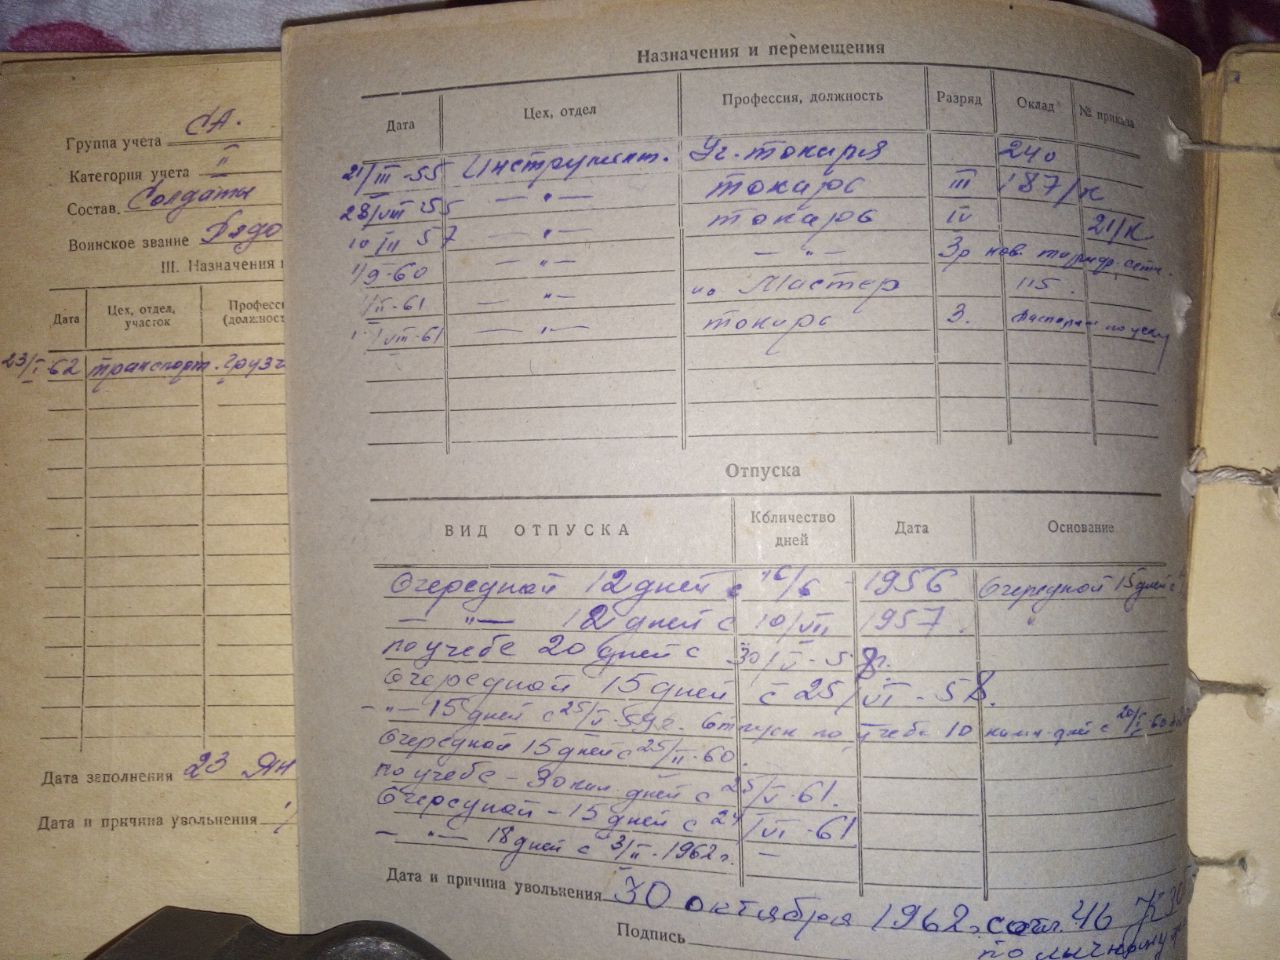 Группа учета СА.
Категория учета II
Состав. Солдаты
Воинское звание Рядо
III. Назначения
Дата Цех, отдел, участок Професс (должност
23/I-62 транспорт. грузч
Дата заполнения 23 Ян
Дата и причина увольнения
Назначения и перемещения
Дата Цех, отдел Профессия, должность Разряд Оклад № приказа
21/III-55 Инструмент. Уч. токаря 240
28/VII-55 — " — токарь III 187/к
10/II 57 — " — токарь IV 21/к
1/9-60 — " — — " — 3р нов. тариф. сетк.
1/II-61 — " — и.о. Мастер 115.
VIII-61 — " — токарь 3.
Отпуска
ВИД ОТПУСКА Количество дней Дата Основание
Очередной 12 дней с 16/6 - 1956 Очередной 15 дней с
— " — 12 дней с 10/VII 1957.
по учебе 20 дней с 30/V-58г.
Очередной 15 дней с 25/VI-58.
— " — 15 дней с 25/V-59г. Отпуск по учебе 10 дней с 20/I-60
Очередной 15 дней с 25/II-60.
по учебе - 30 кал. дней с 25/V-61.
Очередной - 15 дней с 24/VI-61
— " — 18 дней с 3/II-1962г. —
Дата и причина увольнения 30 октября 1962г. 46
Подпись
по личному